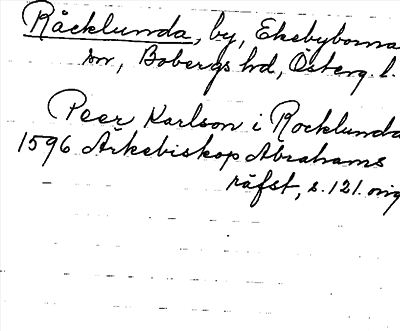 Råcklunda, by, Ekebyborna
sn, Bobergs hd, Österg. l.
Peer Karlson i Rocklunda
1596 Ärkebiskop Abrahams
räfst, s. 121. orig